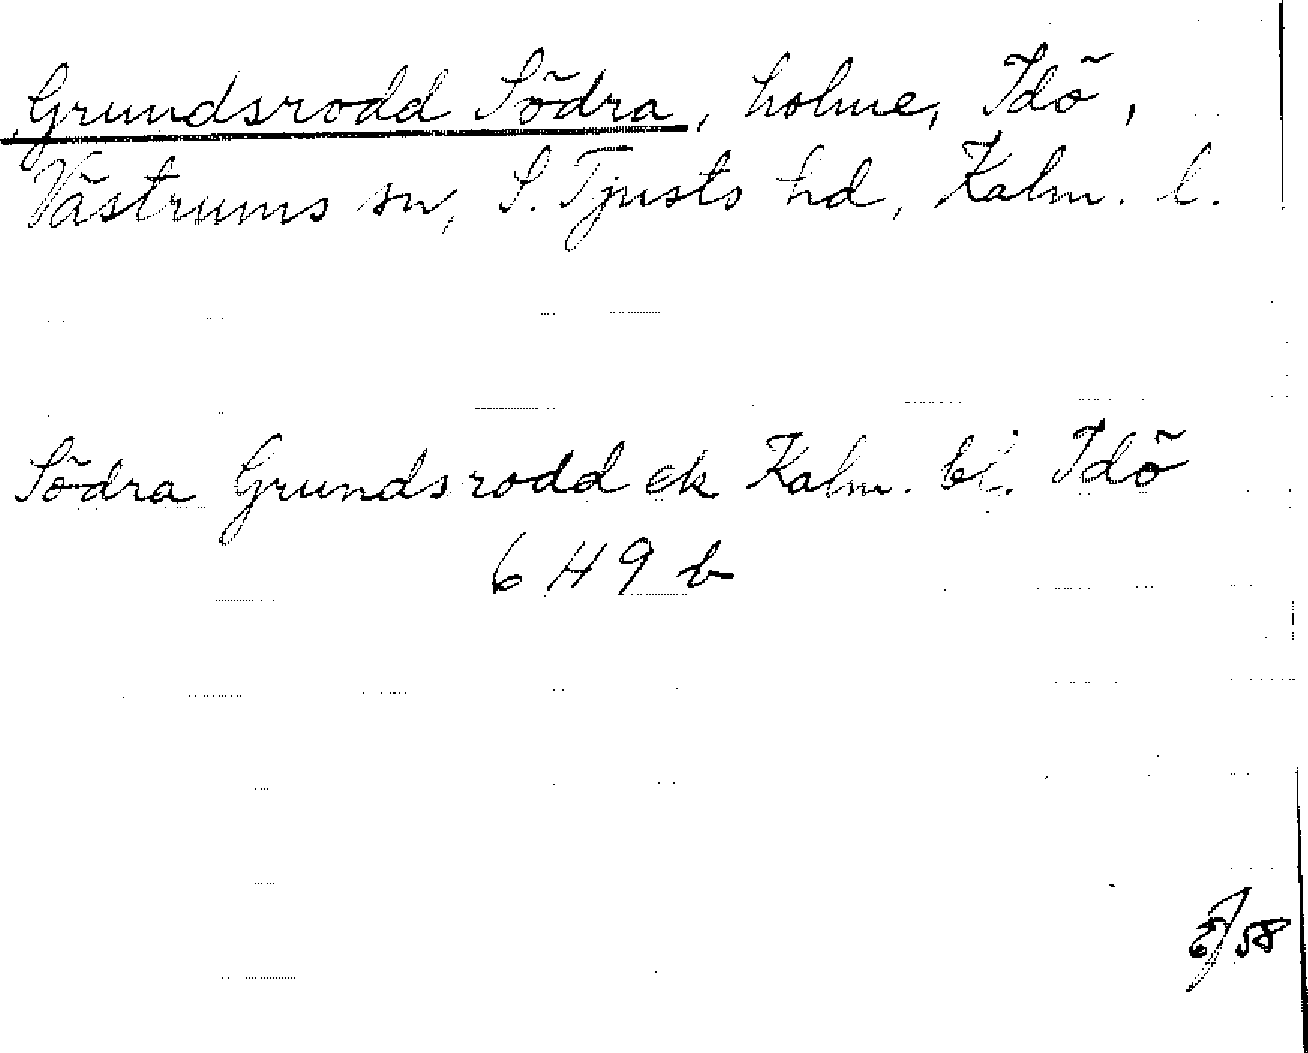 Grundsrodd Södra, holme, Idö,
Västrums sn, S. Tjusts hd, Kalm. l.
Södra Grundsrodd ek Kalm. bl. Idö
6 H 9 b
58